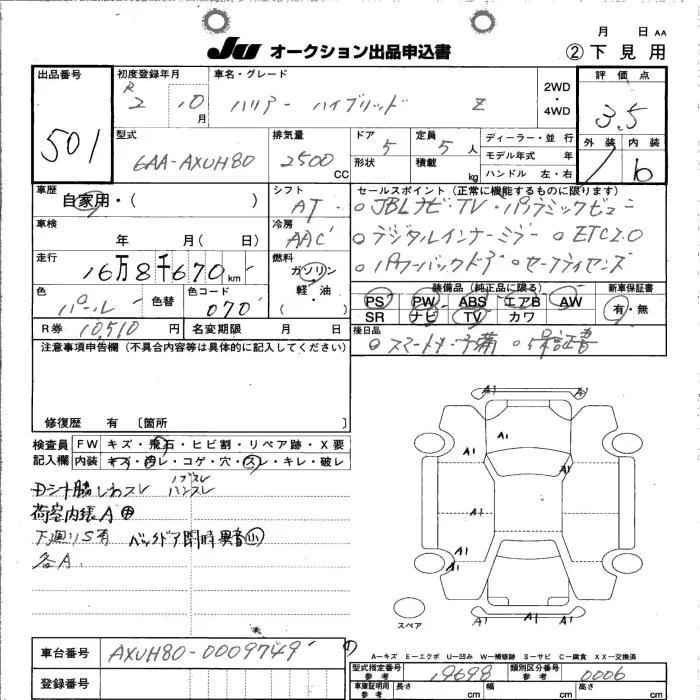 月 日 AA
JU オークション出品申込書
② 下見用
出品番号 501
初度登録年月 R2 10月
車名・グレード ハリアー ハイブリッド Z
2WD・4WD
評価点 3.5
外装 内装 b
型式 6AA-AXUH80
排気量 2500 CC
ドア 5
形状
定員 5人
積載 kg
ディーラー・並行
モデル年式 年
ハンドル 左・右
車歴 自家用・( )
シフト AT
セールスポイント(正常に機能するものに限ります)
○JBLナビ・TV・パノラミックビュー
○デジタルインナーミラー ○ETC2.0
○パワーバックドア ○セーフティセンス
車検 年 月( 日)
冷房 AAC
走行 16万8千670km
燃料 ガソリン 軽・油
色 パール 色替 色コード 070
装備品(純正品に限る)
PS PW ABS エアB AW
SR ナビ TV カワ
新車保証書 有・無
R券 10,510円 名変期限 月 日
後日品 ○スマートキー予備 ○保証書
注意事項申告欄(不具合内容等は具体的に記入してください)
修復歴 有 〔箇所 〕
検査員記入欄
FW キズ・飛石・ヒビ割・リペア跡・X要
内装 キズ・汚レ・コゲ・穴・スレ・キレ・破レ
Dシート脇しわスレ ノブスレ
ハンスレ
荷室内張A
下廻りS有 バックドア開時異音小
各A
A1 A1
A1
A1 A1
A1
A1
A1
A1 A A1
スペア
A−キズ E−エクボ U−凹み W−補修跡 S−サビ C−腐食 XX−交換済
車台番号 AXUH80-0009749
登録番号
型式指定番号 参考 19698
類別区分番号 参考 0006
車庫証明用 参考 長さ cm 幅 cm 高さ cm